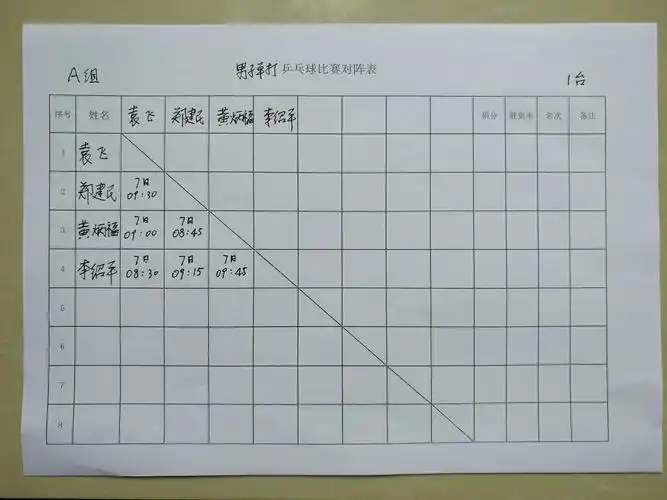 A组 男子单打 乒乓球比赛对阵表 1台
序号 姓名 袁飞 郑建民 黄炳福 李绍平 积分 胜负率 名次 备注
1 袁飞
2 郑建民 7日 09:30
3 黄炳福 7日 09:00 7日 08:45
4 李绍平 7日 08:30 7日 09:15 7日 09:45
5
6
7
8